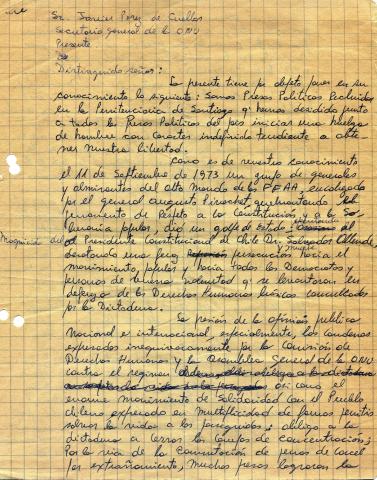 Sr. Javier Pérez de Cuellar
Secretario general de la ONU
Presente
Distinguido señor:
La presente tiene por objeto poner en su
conocimiento lo siguiente: Somos Presos Políticos Recluidos
en la Penitenciaria de Santiago q' hemos decidido junto
a todos los Presos Políticos del país iniciar una huelga
de hambre con caracter indefinido tendiente a obte-
ner nuestra libertad.
Como es de vuestro conocimiento
el 11 de Septiembre de 1973 un grupo de generales
y almirantes del Alto Mando de las FFAA, encabezado
por el general Augusto Pinochet, quebrantando
juramento de Respeto a la Constitución y a la So-
berania popular, dió un golpe de estado; al
Presidente Constitucional de Chile Dr. Salvador Allende,
desatando una feroz persecución y muerte hacia el
movimiento popular y hacia todos los Democratas y
personas de buena voluntad q' se levantaron en
defensa de los Derechos Humanos básicos conculcados
por la Dictadura.
La presión de la opinión publica
Nacional e internacional, especialmente, las condenas
expresadas inequivocamente por la Comisión de
Derechos Humanos y la Asamblea General de la ONU
contra el regimen así como el
enorme movimiento de Solidaridad con el Pueblo
chileno expresado en multiplicidad de formas permitió
salvar la vida a los perseguidos; obligó a la
dictadura a cerrar los Campos de concentración;
Por la via de la Conmutación de penas de carcel
por extrañamiento, muchos presos lograron la